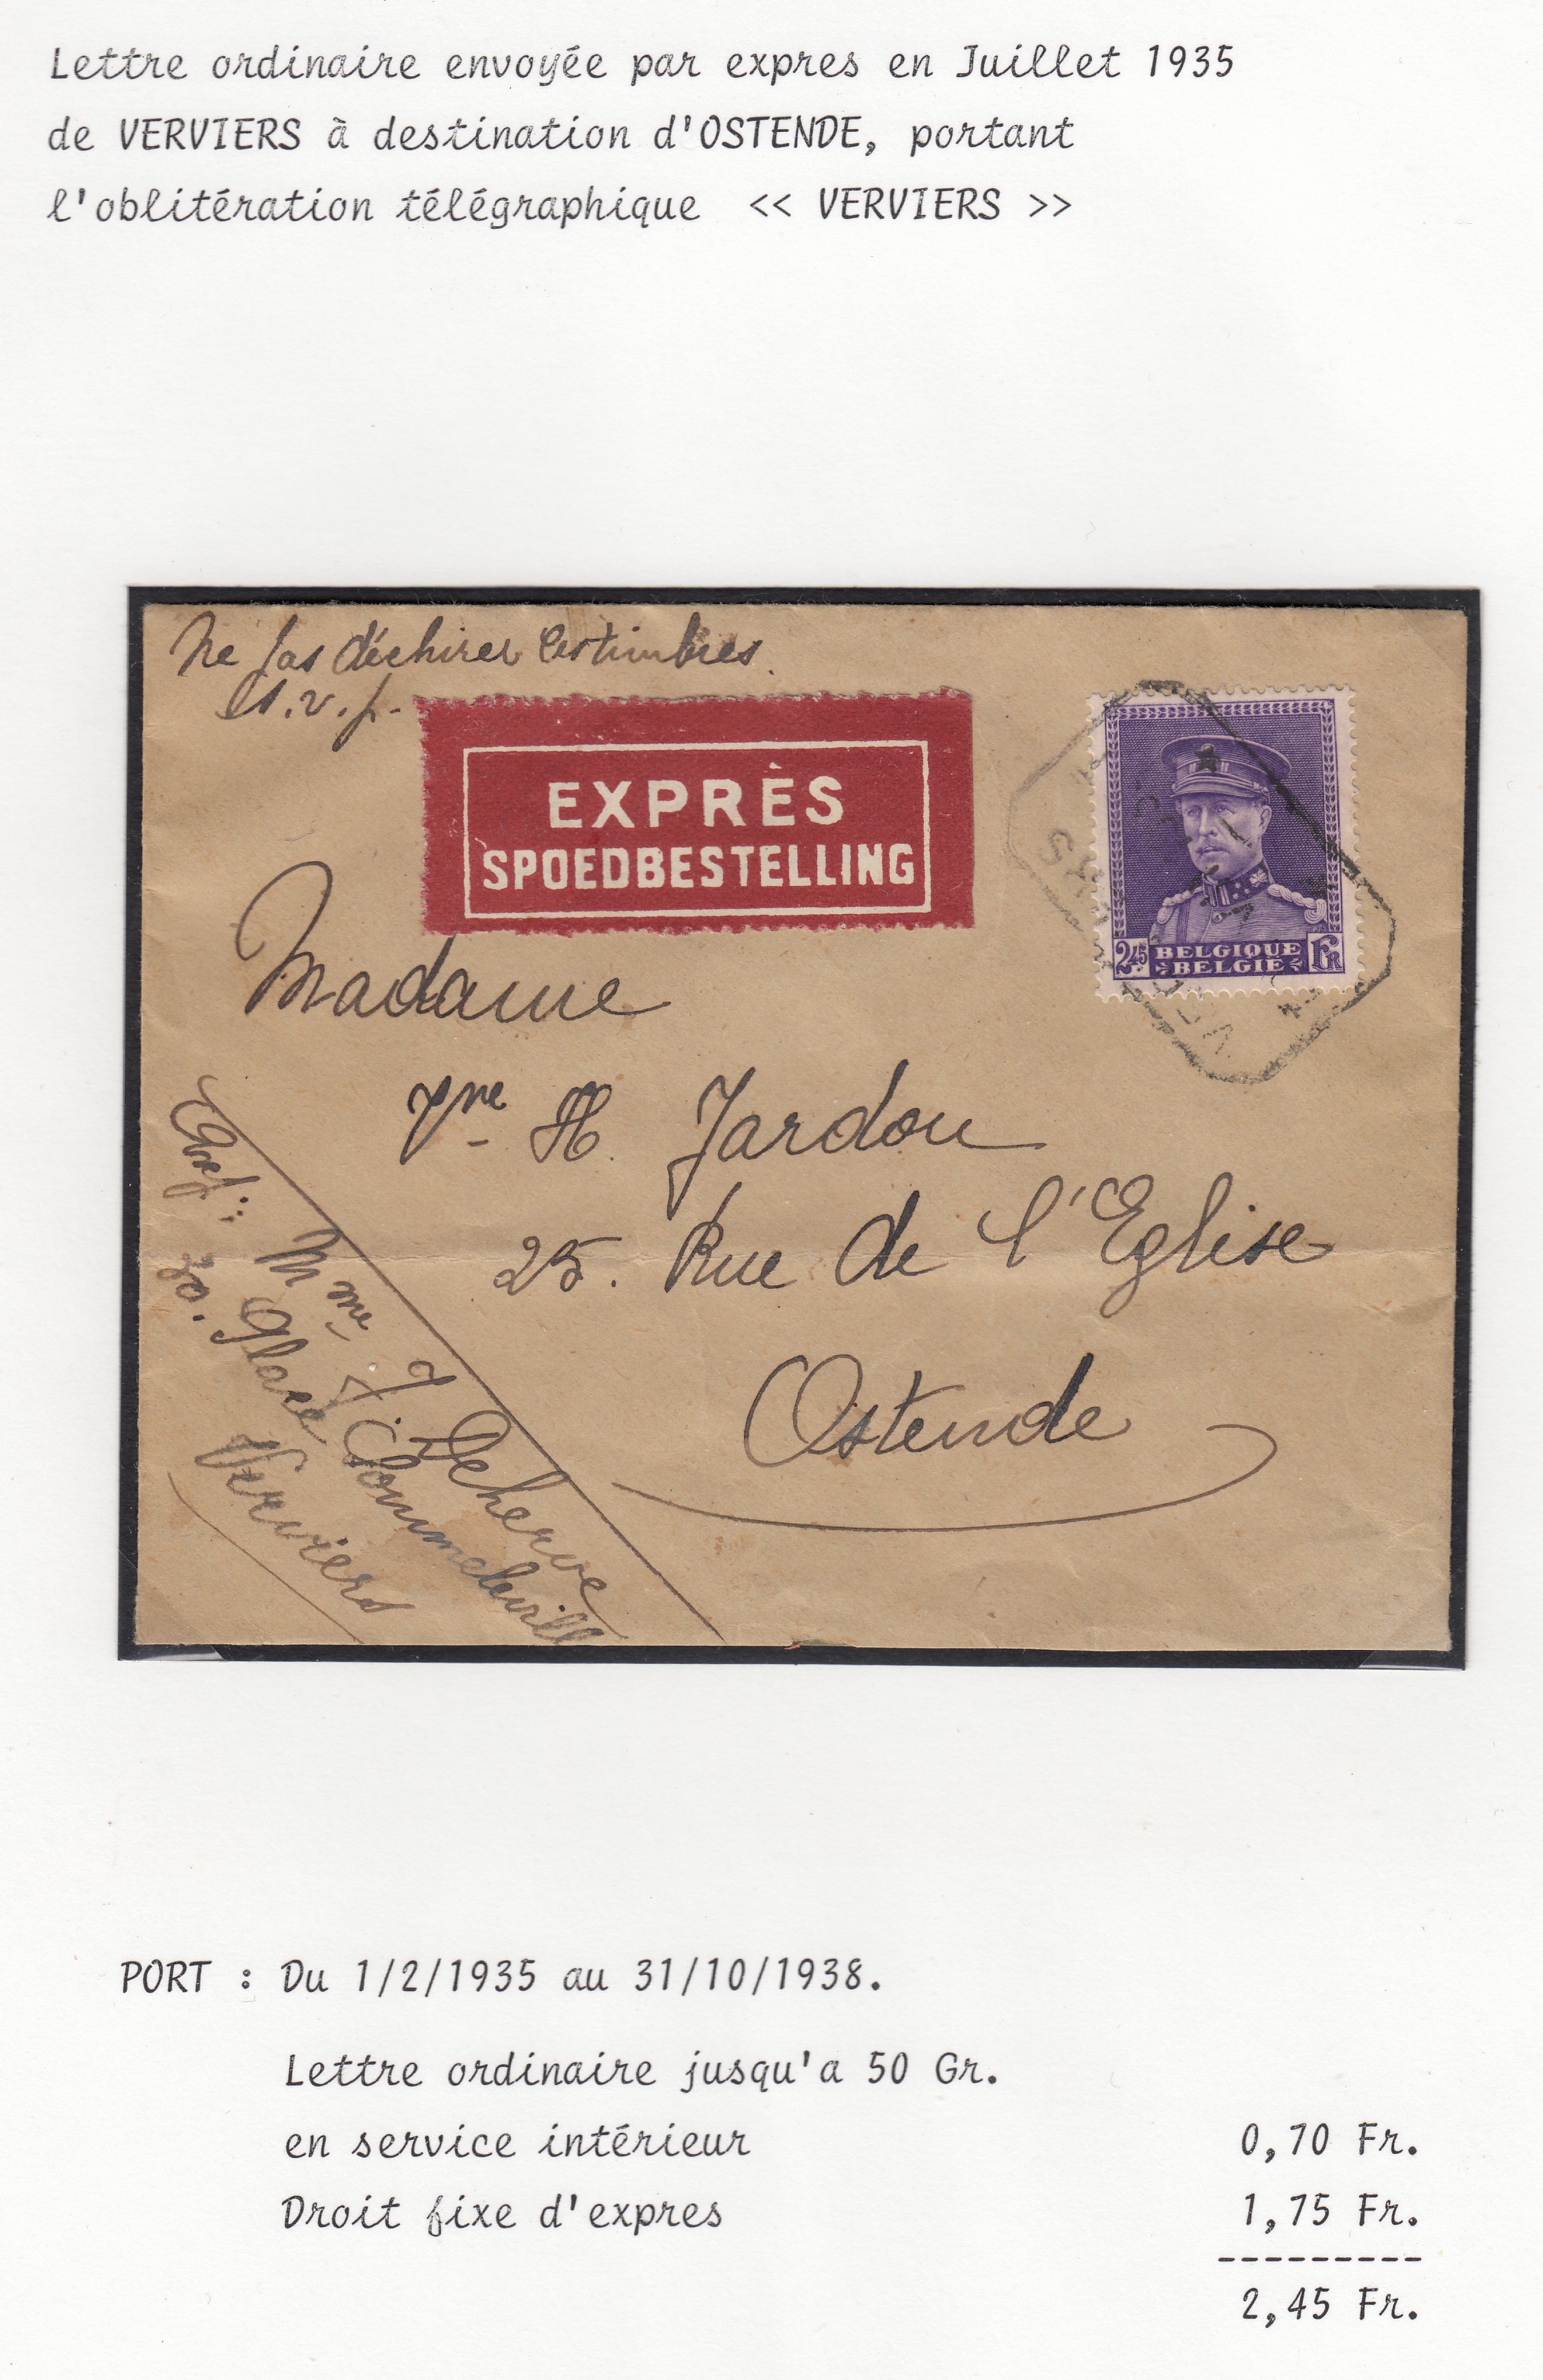 Lettre ordinaire envoyée par expres en Juillet 1935
de VERVIERS à destination d'OSTENDE, portant
l'oblitération télégraphique << VERVIERS >>
Ne pas déchirer les timbres
s.v.p.
EXPRÈS
SPOEDBESTELLING
2,45 BELGIQUE Fr
BELGIË
Madame
Vve H. Jardon
25. Rue de l'Eglise
Ostende
Mme J Deherve
30. Place Sommeleville
Verviers
PORT : Du 1/2/1935 au 31/10/1938.
Lettre ordinaire jusqu'a 50 Gr.
en service intérieur 0,70 Fr.
Droit fixe d'expres 1,75 Fr.
---------
2,45 Fr.